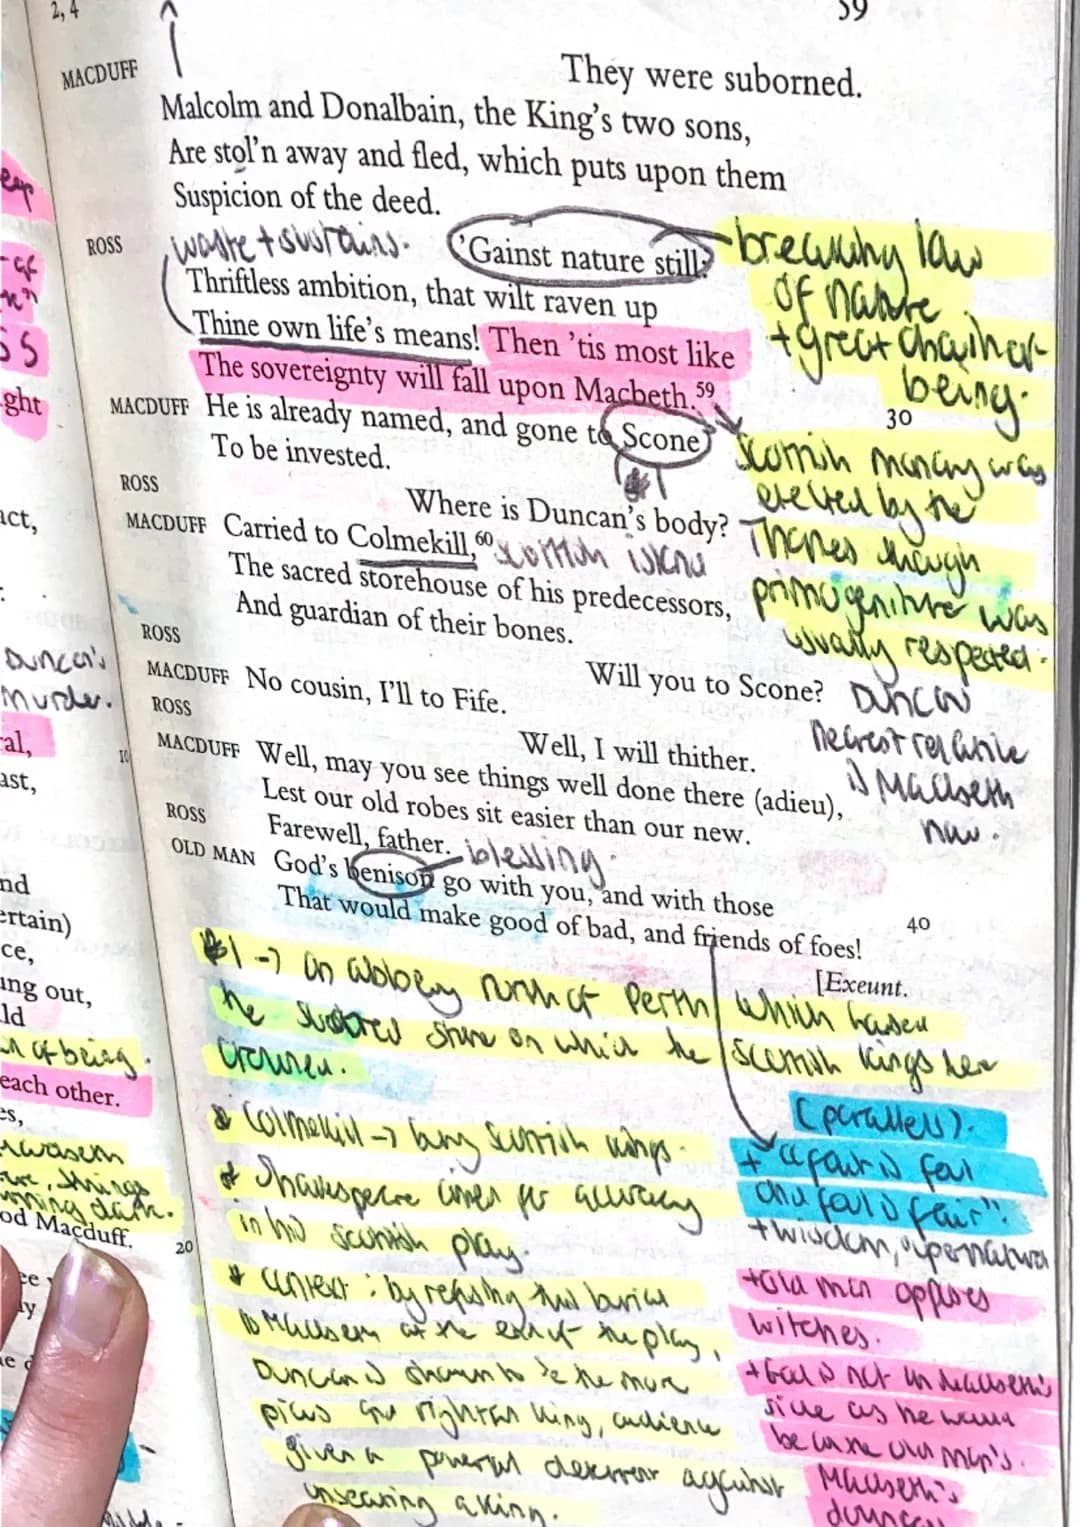 2, 4
59
MACDUFF They were suborned.
Malcolm and Donalbain, the King's two sons,
Are stol'n away and fled, which puts upon them
Suspicion of the deed.
ROSS 'Gainst nature still?
waste + sustains.
Thriftless ambition, that wilt raven up
Thine own life's means! Then 'tis most like
The sovereignty will fall upon Macbeth.59
MACDUFF He is already named, and gone to Scone 30
To be invested.
ROSS Where is Duncan's body?
MACDUFF Carried to Colmekill,60
The sacred storehouse of his predecessors,
And guardian of their bones.
ROSS Will you to Scone?
MACDUFF No cousin, I'll to Fife.
ROSS Well, I will thither.
MACDUFF Well, may you see things well done there (adieu),
Lest our old robes sit easier than our new.
ROSS Farewell, father.
blessing.
OLD MAN God's benison go with you, and with those
That would make good of bad, and friends of foes! 40
[Exeunt.
breaking law
of nature
+ great chain of
being.
Scottish monarchy was
elected by the
Thanes though
primogeniture was
usually respected.
Duncan
nearest relative
is Macbeth
now.
1 → an abbey north of Perth which housed
the stone on which the Scottish kings
crowned.
Colmekill → bury Scottish kings.
Shakespeare aimed for accuracy
in his Scottish play.
context : by refusing this burial
to Macbeth at the end of the play,
Duncan is shown to be the more
pious and rightful king, audience
given a powerful deterrent against
unseating a king.
(parallels).
+ "fair is foul
and foul is fair".
+ wisdom, supernatural
+ old man opposes
witches.
+ God is not on Macbeth's
side as he would
be on the old man's.
Macbeth's
Duncan's
Murder.
ght
act,
al,
ast,
10
nd
ertain)
ce,
ing out,
ld
of being.
each other.
es,
things
dark.
od Macduff.
20